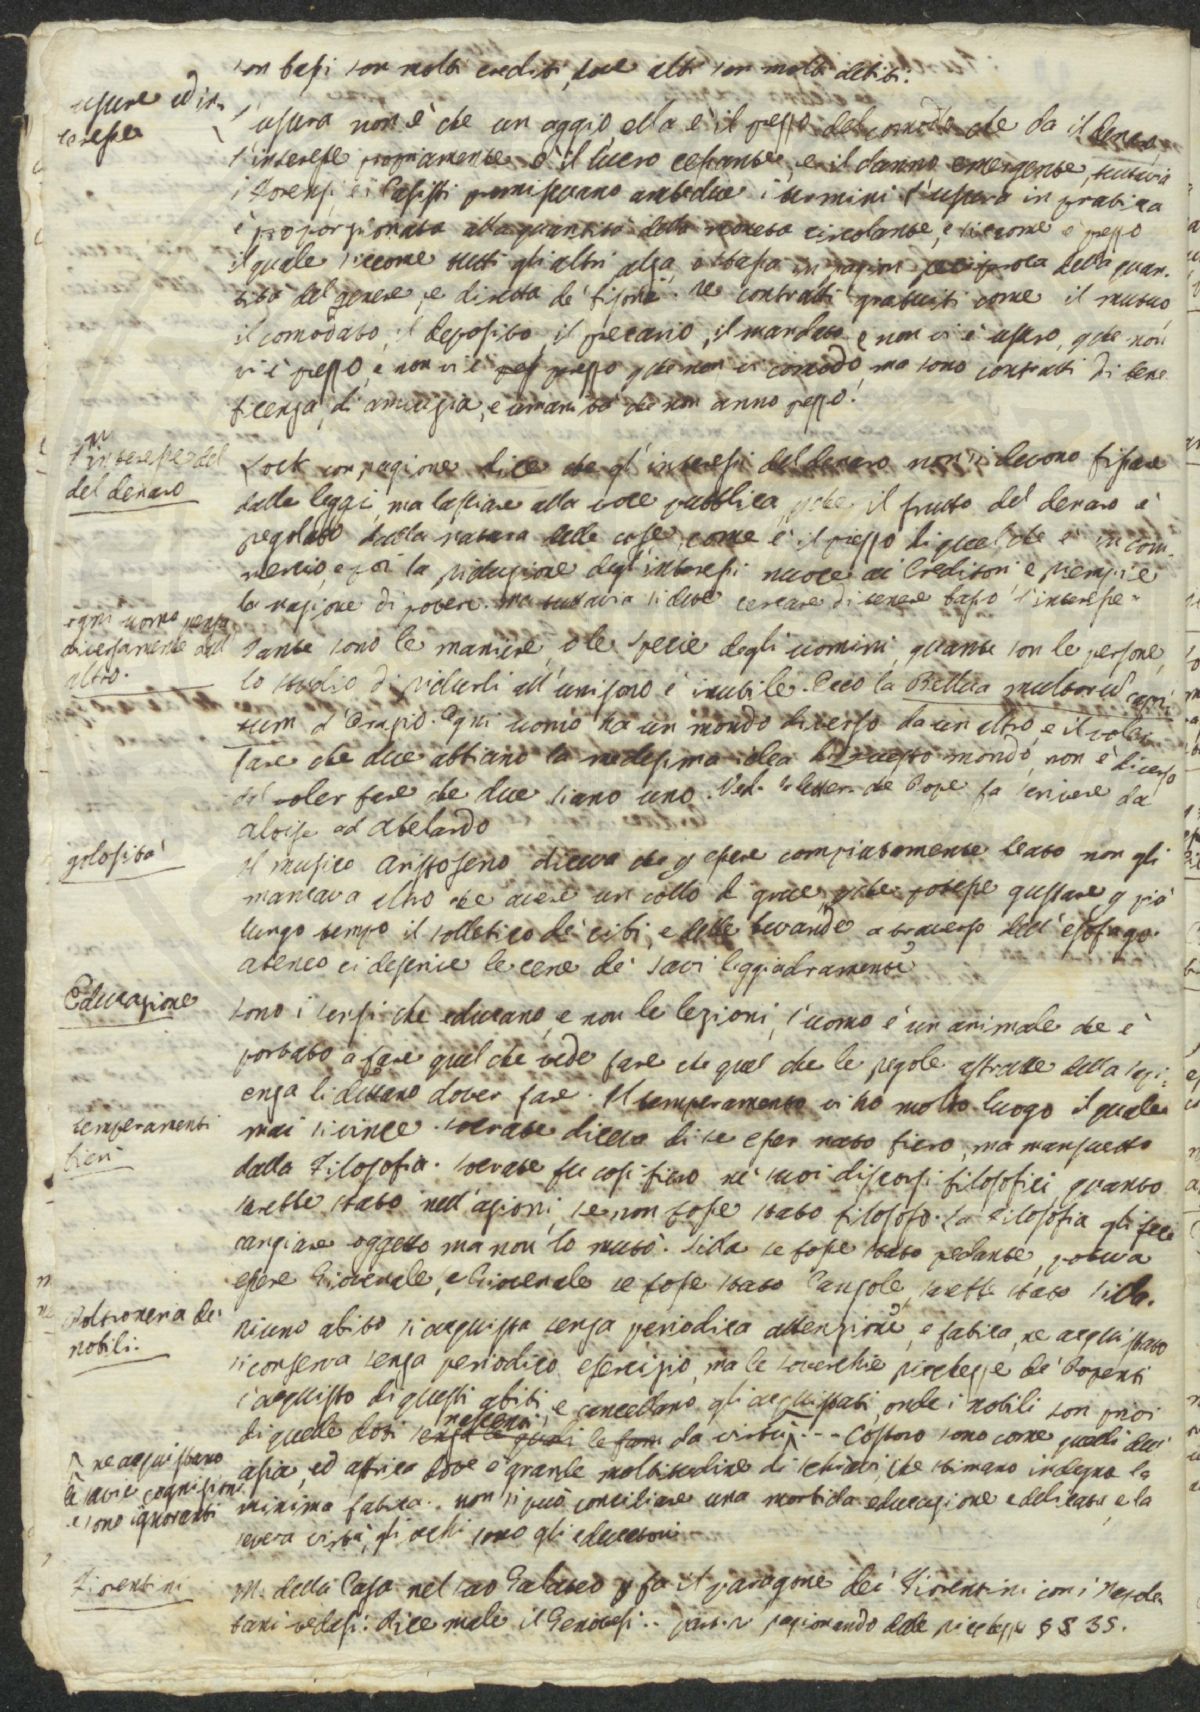 son bassi son molti crediti, dove alti son molti debiti.
usure ed in-
teresse
l'usura non è che un aggio ella è il prezzo del comodo che da il denaro
l'interesse propriamente è il lucro cessante, e il danno emergente, tuttavia
i Forensi e i Casisti permischiano ambedue i termini l'usura in pratica
è proporzionata alla quantità della moneta circolante, e siccome è prezzo
il quale siccome tutti gli altri alza, o bassa in ragion reciproca della quan-
tità del genere, e diretta de' bisogni. Ne contratti gratuiti come il mutuo
il comodato, il deposito, il precario, il mandato, e non vi è usura, perche non
vi è prezzo, e non vi è prezzo perche non vi comodo, ma sono contratti di bene
ficenza, di amicizia, e umanità che non anno prezzo.
l'interesse del
del denaro
Lock con ragione dice che gl'interessi del denaro non si devono fissare
dalle leggi, ma lasciare alla voce pubblica, perche il frutto del denaro è
regolato dalla natura delle cose, come è il prezzo di quel che è in com-
mercio, e poi la riduzione degl'interessi nuoce ai Creditori e riempie
la nazione di poveri. ma tuttavia si deve cercare di tenere basso l'interesse.
ogni uomo pensa
diversamente dall
altro.
Tante sono le maniere, o le specie degli uomini, quante son le persone,
lo studio di ridurli all'unisono è inutile. Ecco la Bellua multorum capi-
tum d'Orazio. Ogni uomo ha un mondo diverso da un altro, e il voler
fare che due abbiano la medesima idea di questo mondo, non è diverso
del voler fare che due siano uno. Ved. la letter. che Pope fa scrivere da
aloise ad Abelardo
golosità
Il musico Aristoseno diceva che per essere compiutamente beato non gli
mancava altro che avere un collo di grue, perche potesse gustare per più
lungo tempo il solletico de' cibi, e delle bevande a traverso dell'esofago.
ateneo ci descrive le cene de' savi leggiadramente
Educazione
Sono i sensi che educano, e non le lezioni, l'uomo è un animale che è
portato a fare quel che vede fare che quel che le regole astratte della sapi-
enza li dettano dover fare. Il temperamento vi ho molto luogo il quale
temperamenti
fieri
mai si vince. Socrate diceva di se esser nato fiero, ma mansueto
dalla Filosofia. Socrate fu così fiero ne' suoi discorsi filosofici, quanto
sarebbe stato nell'azioni, se non fosse stato filosofo. La Filosofia gli fece
cangiare oggetto ma non lo mutò. Silla se fosse stato pedante, poteva
essere Giovenale, e Giovenale se fosse stato Console, sarebbe stato Silla.
Poltroneria de'
nobili.
Niuno abito si acquista senza periodica attenzione, e fatica, ne acquistato
si conserva senza periodico esercizio, ma le soverchie ricchezze de' Parenti
l'acquisto di questi abiti, e cancellano gli acquistati, onde i nobili son privi
di quelle doti nascenti da virtù --- Costoro sono come quelli dell'
ne acquistano
le savie cognizioni
e sono ignoranti
asia, ed affrica dove è grande moltitudine di schiavi, che stimano indegna la
minima fatica. non si può conciliare una morbida educazione e delicata, e la
severa virtù, gli achi sono gli educatori
Fiorentini
M. della Casa nel suo Galateo fa il paragone dei Fiorentini con i Napole
tani vedasi. dice male il Genovesi .. ragionando delle ricchezze § § 35.